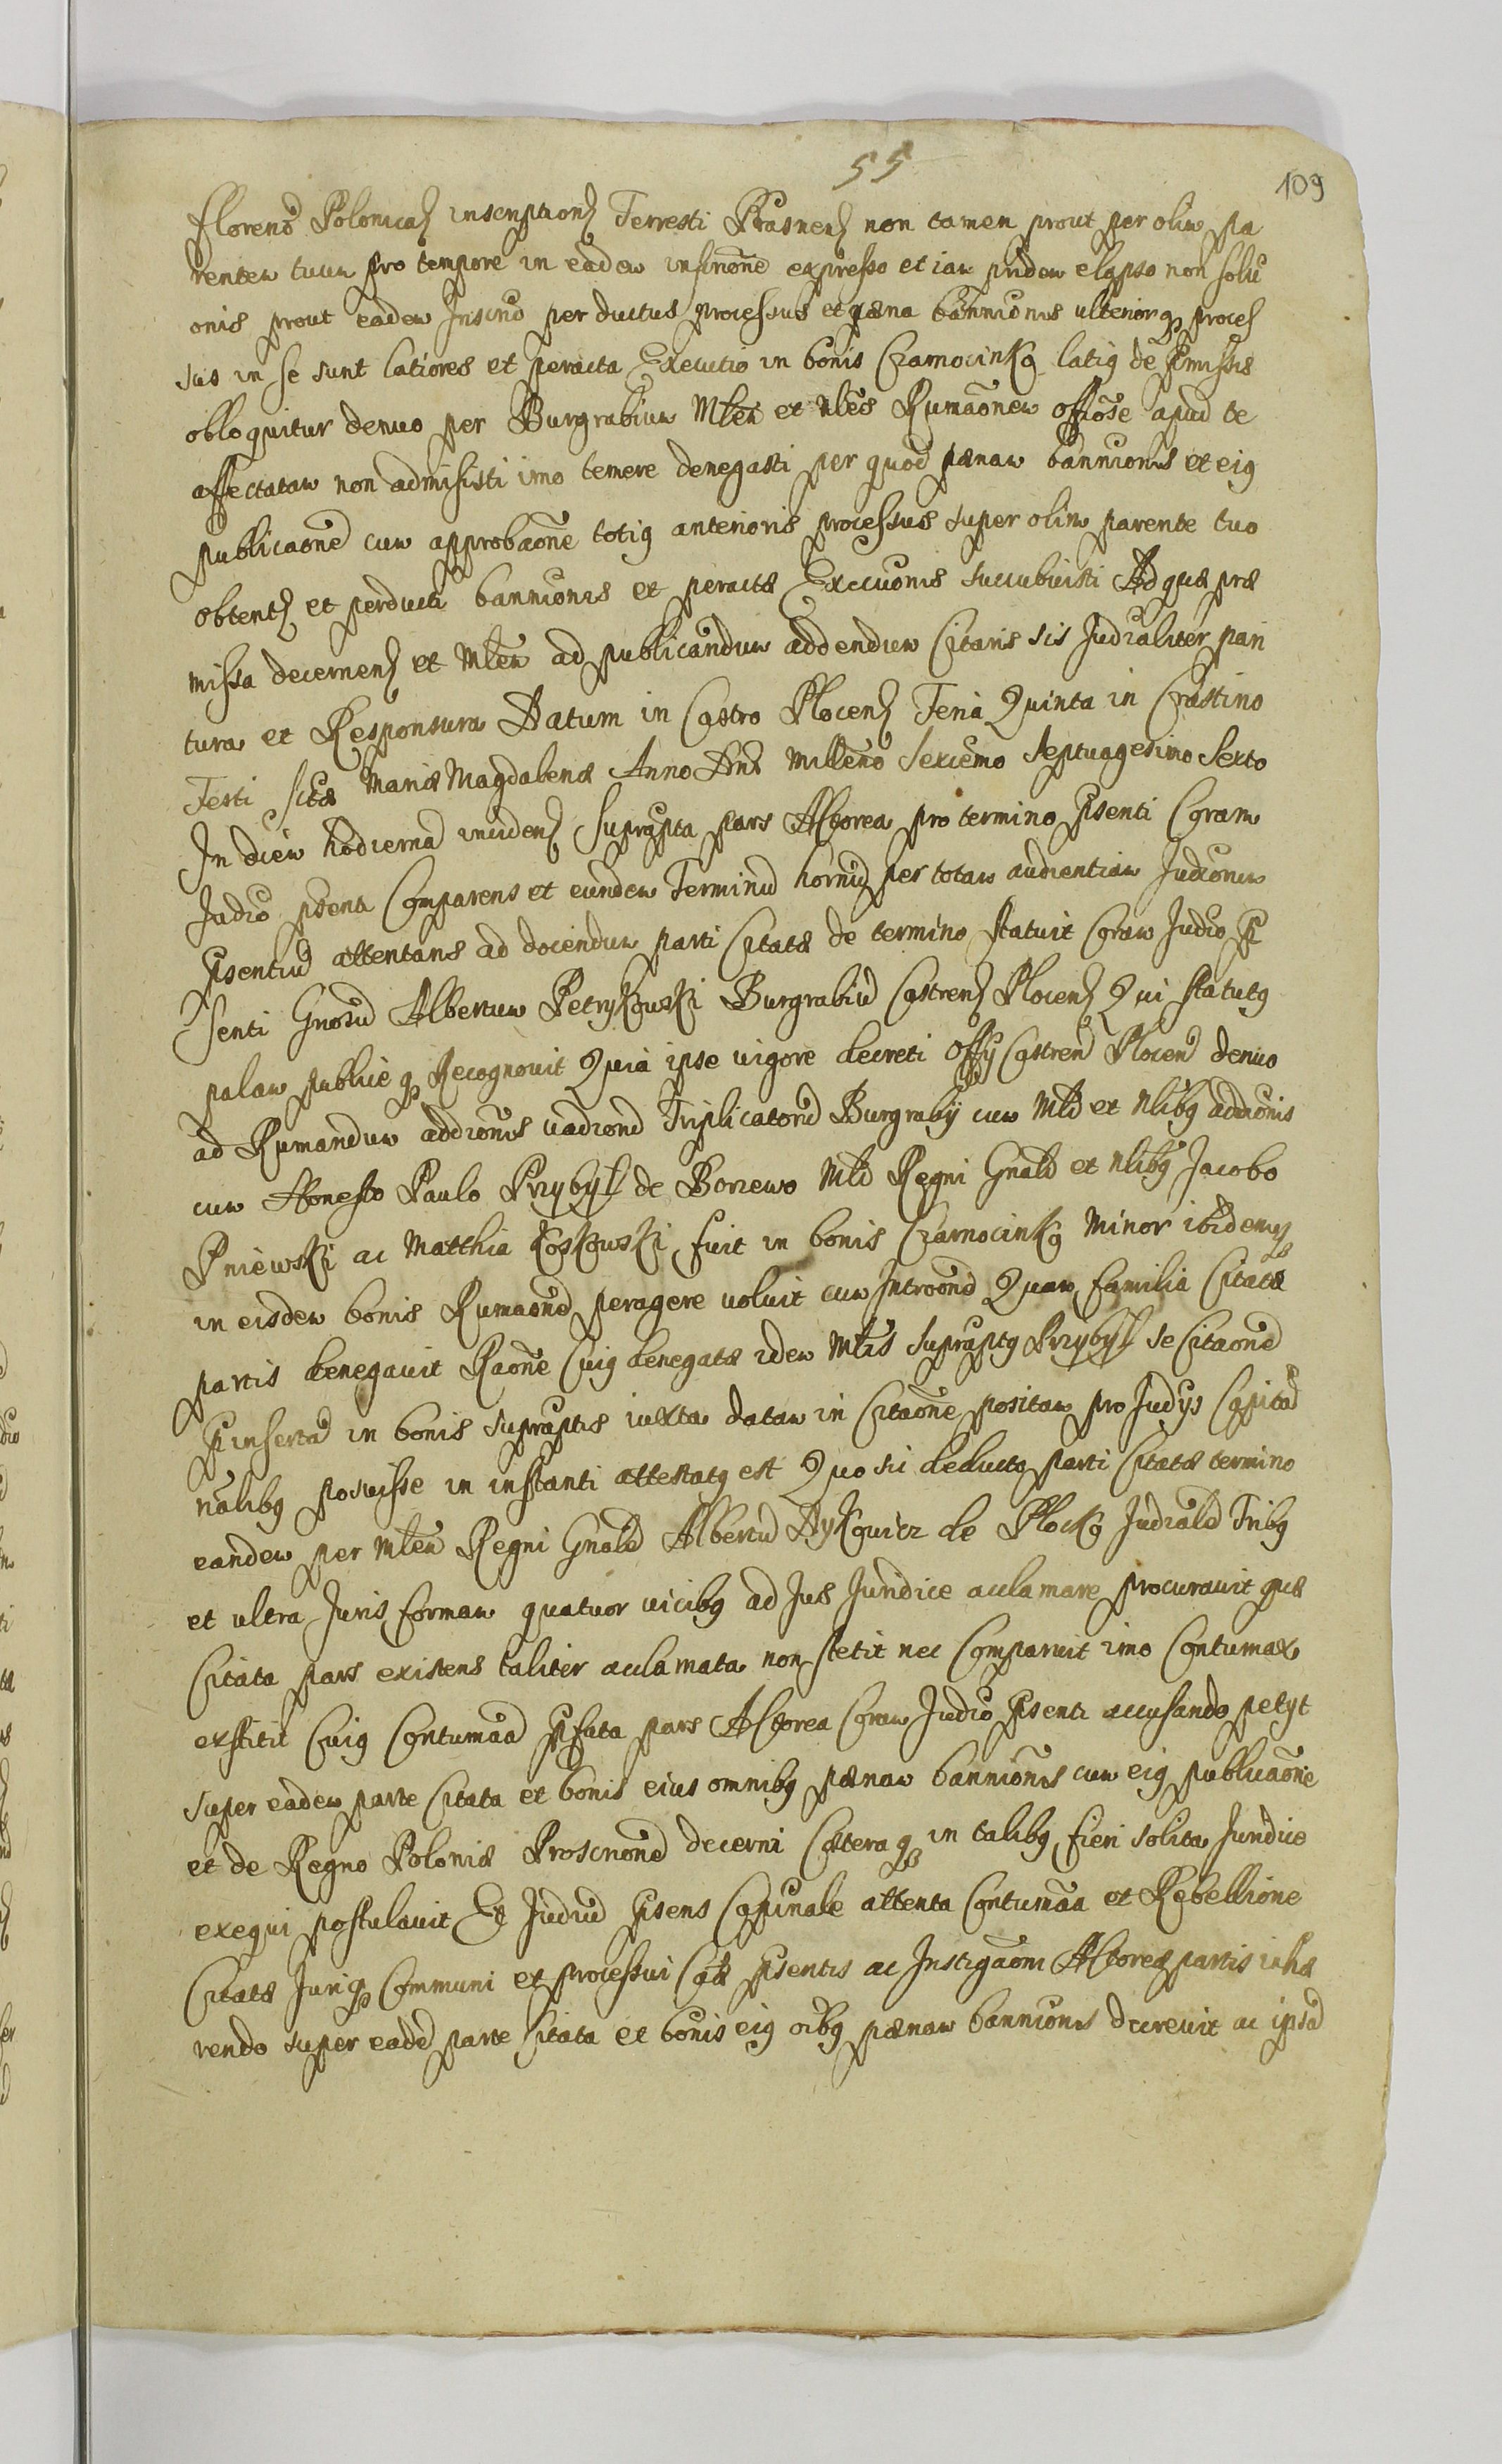 55
109
Florenos Polonical inscriptionis Terrestri Prasnen non tamen prout per olim pa
rentem tuum pro tempore in eadem inscrnone expresso et iam pridem elapso non solu
onis prout eadem Inscrio per ductus processus et pæna banniõnis ulteriorq proces
sus in se sunt latiores et peracta Executio in bonis Czarnocinko latiq de pmissis
obloquitur denuo per Burgrabium Mlem et nbles Rumaõnem offiose apud te
affectatam non admisisti imo temere denegasti per quod pænam banniõnis et eiq
publicaõne cum approbaõne totiq anterioris processus super olim parente tuo
obtent et perducti banniõnis et peractæ Execuõnis succubuisti Ad quæ præ
missa decernen et Mlem ad publicandum addendum Citaris sis Judicialiter pari
tura et Responsura Datum in Castro Plocen Feria Quinta in Crastino
Festi Sctæ Mariæ Magdalenæ Anno Dni Milleno Sexcemo Septuagesimo Sexto
In diem hodiernã inciden Suprapta pars Actorea pro termino psenti Coram
Judio psenti Comparens et eundem Terminu hornu per totam audientiam Judiorum
psentiu attentans ad docendum parti Citatæ de termino statuit Coram Judio p
senti Gnosu Albertum Petrykowski Burgrabiu Castren Plocen Qui statutq
palam publiceq Recognovit Quia ipse vigore decreti Offy Castren Plocen denuo
ad Rumandum addionis vadiond Triplicatond Burgrabij cum Mld et nlibq addionis
cum Honesto Paulo Przybył de Borzewo Mld Regni Gnald et nlibq Jacobo
Pniewski ac Matthia Koskowski fuit in bonis Czarnocinko Minor ibidemq
in eisdem bonis Rumaõne peragere voluit cum Introond Quam familia Citatæ
partis denegavit Raone Cuiq denegatæ idem Mlis supraptq Przybył se Citaõne
pinserta in bonis supraptis iuxta datam in Citaõne positam pro Judys Capita
nalibq posuisse in instanti attestatq est Quo sic deductq parti Citatæ termino
eandem per Mlem Regni Gnald Albertu Dykowicz de Plocko Judiald Tribq
et ultra Juris formam quatuor vicibq ad Jus Juridice acclamare procuravit quæ
Citata pars existens taliter acclamata non stetit nec Comparuit imo Contumax
exstitit Cuiq Contumaa pfata pars Actorea Coram Judio psenti accusando petyt
super eadem parte Citata et bonis eius omnibq pænam banniõnis cum eiq publicaõne
et de Regno Poloniæ Proscriõne decerni Cæteraq in talibq fieri solita Juridice
exequi postulavit Et Judiu psens Capinale attenta Contumaa et Rebellione
Citatæ Juriq Communi et processui Cæ psentis ac Instigaõni Actoreæ partis inhæ
rendo super eade parte Citata et bonis eiq oibq pænam banniõnis decrevit ac ipsã